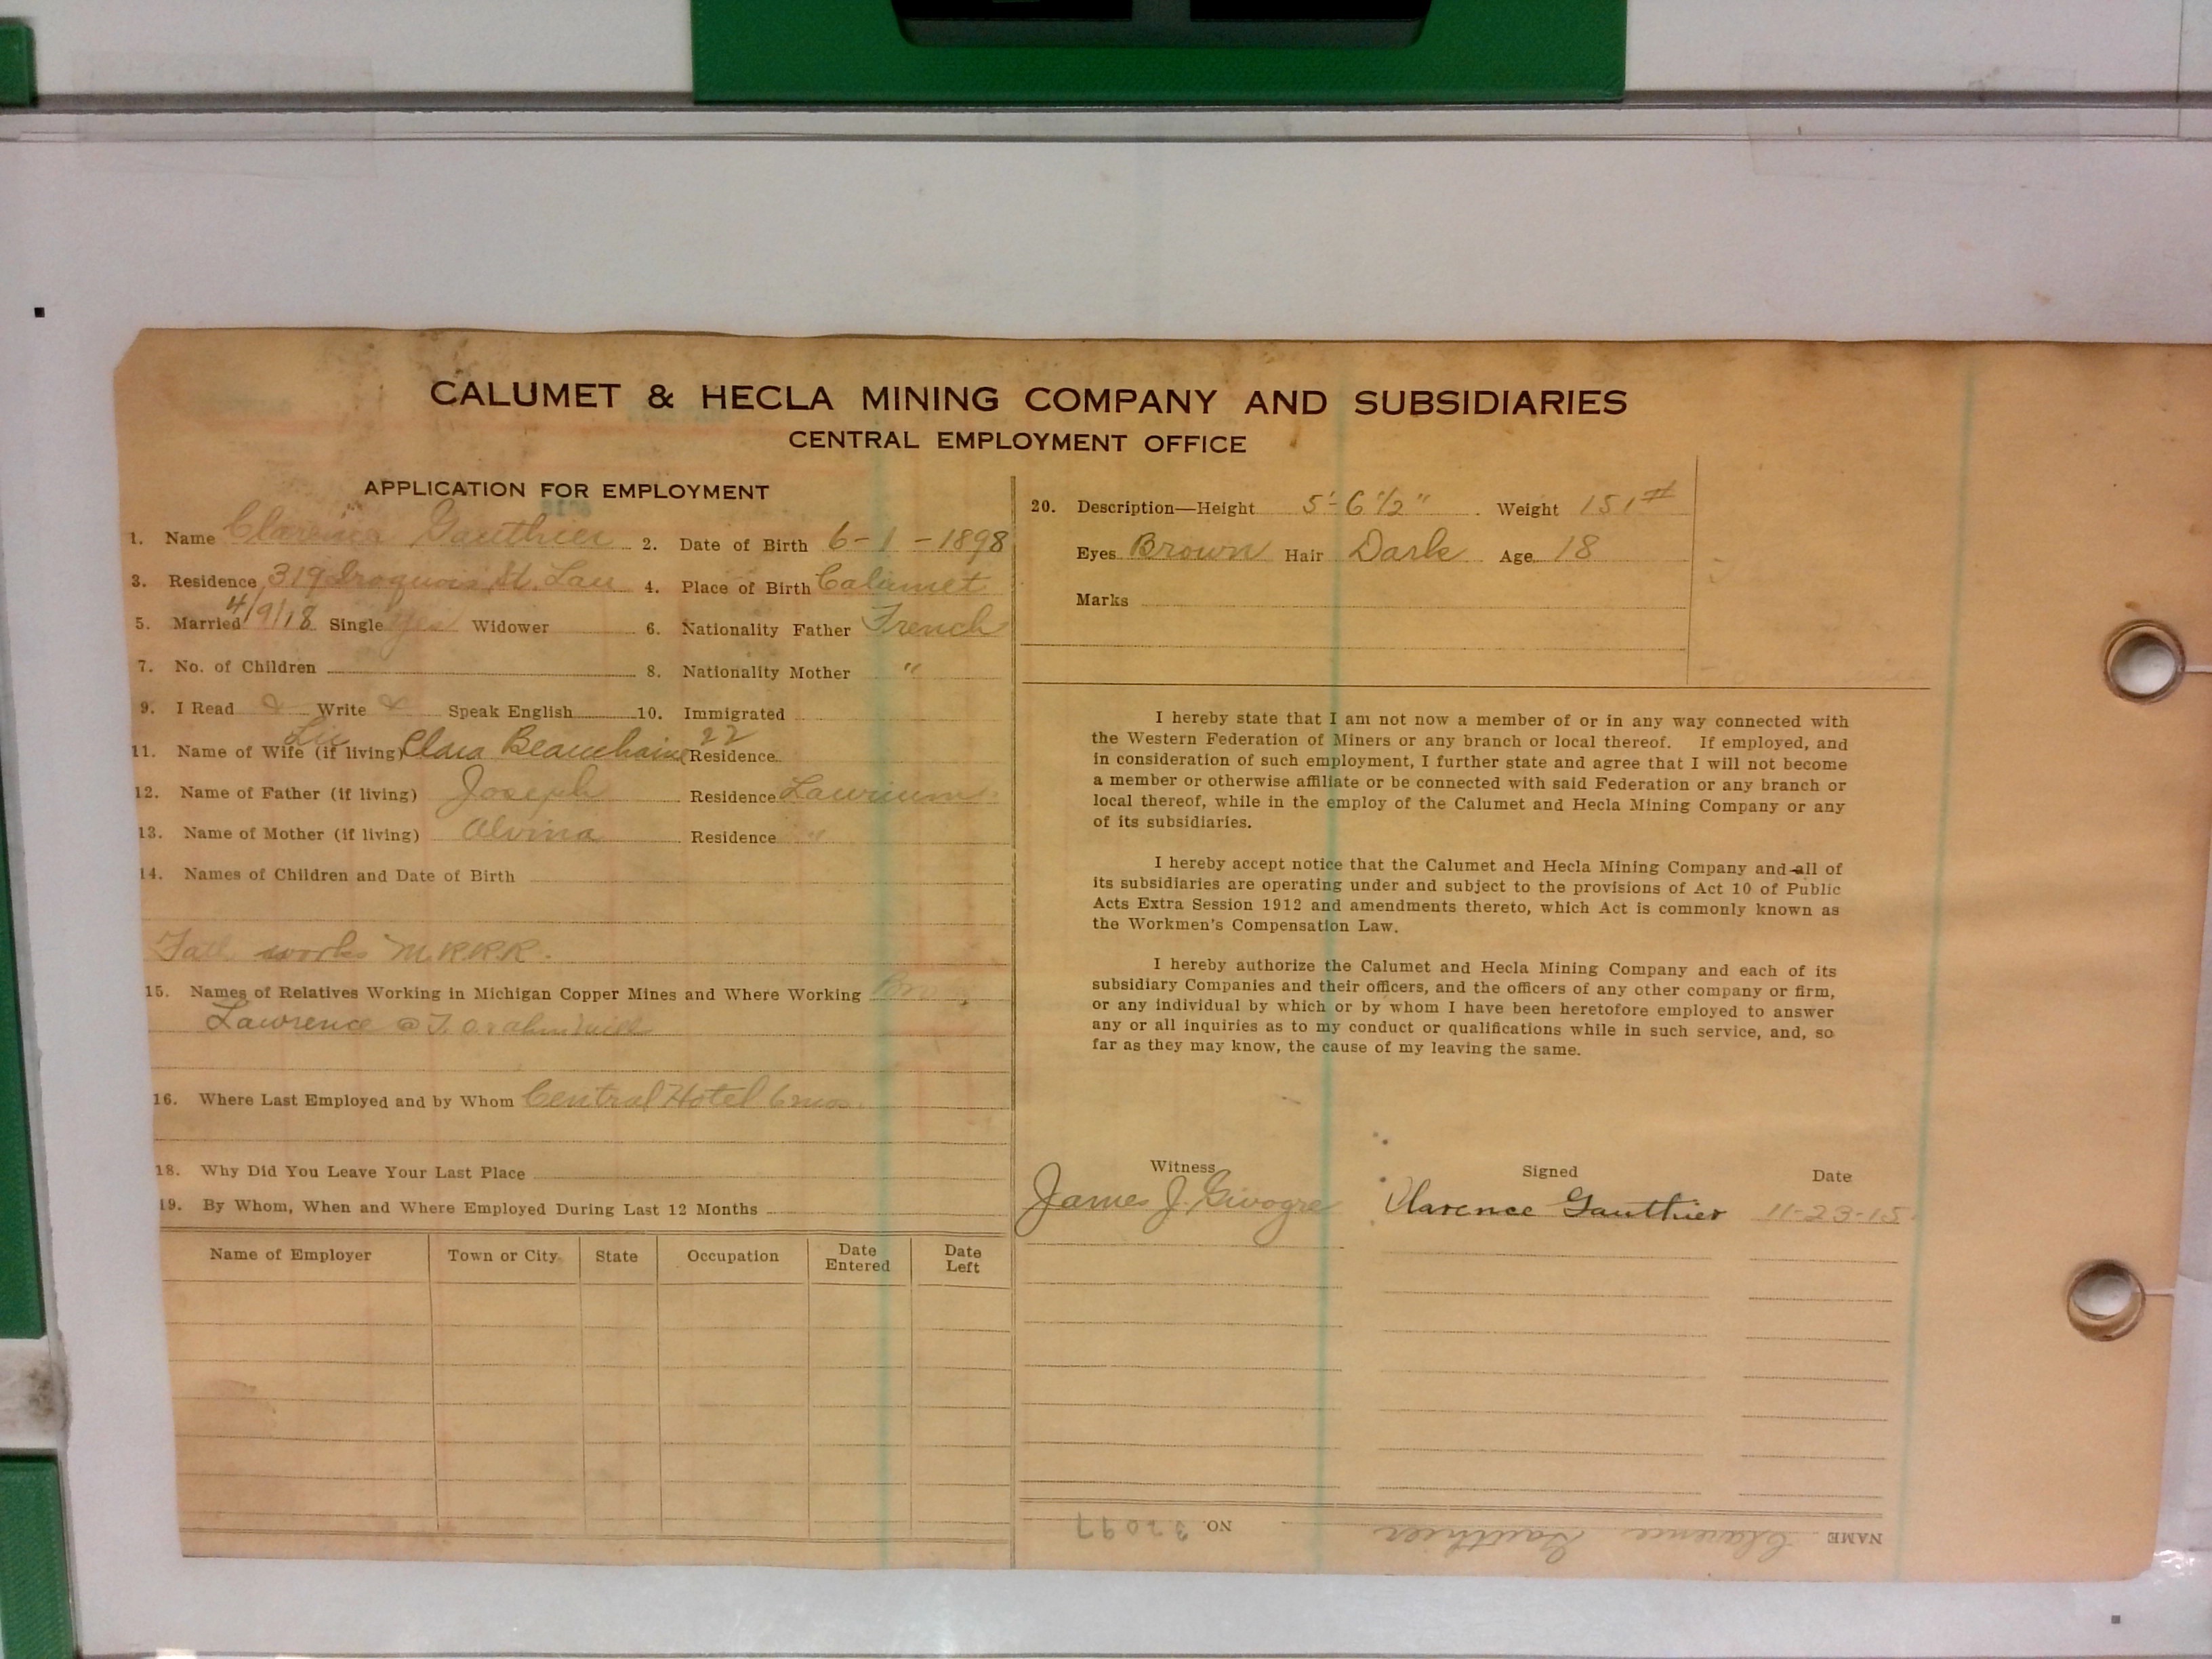 CALUMET & HECLA MINING COMPANY AND SUBSIDIARIES
CENTRAL EMPLOYMENT OFFICE
APPLICATION FOR EMPLOYMENT
1. Name Clarence Gauthier 2. Date of Birth 6-1-1898
3. Residence 319 Iroquois St. Lau 4. Place of Birth Calumet
5. Married 4/9/18 Single Yes Widower 6. Nationality Father French
7. No. of Children 8. Nationality Mother "
9. I Read Write Speak English 10. Immigrated
11. Name of Wife (if living) Clara Beauchaine 22 Residence
12. Name of Father (if living) Joseph Residence Laurium
13. Name of Mother (if living) Alvina Residence "
14. Names of Children and Date of Birth
Fath works M.R.R.R.
15. Names of Relatives Working in Michigan Copper Mines and Where Working
Lawrence @
16. Where Last Employed and by Whom Central Hotel 6 mos.
18. Why Did You Leave Your Last Place
19. By Whom, When and Where Employed During Last 12 Months
Name of Employer Town or City State Occupation Date Entered Date Left
20. Description—Height 5'-6 1/2" Weight 151#
Eyes Brown Hair Dark Age 18
Marks
I hereby state that I am not now a member of or in any way connected with
the Western Federation of Miners or any branch or local thereof. If employed, and
in consideration of such employment, I further state and agree that I will not become
a member or otherwise affiliate or be connected with said Federation or any branch or
local thereof, while in the employ of the Calumet and Hecla Mining Company or any
of its subsidiaries.
I hereby accept notice that the Calumet and Hecla Mining Company and all of
its subsidiaries are operating under and subject to the provisions of Act 10 of Public
Acts Extra Session 1912 and amendments thereto, which Act is commonly known as
the Workmen's Compensation Law.
I hereby authorize the Calumet and Hecla Mining Company and each of its
subsidiary Companies and their officers, and the officers of any other company or firm,
or any individual by which or by whom I have been heretofore employed to answer
any or all inquiries as to my conduct or qualifications while in such service, and, so
far as they may know, the cause of my leaving the same.
Witness Signed Date
James J. Givogre Clarence Gauthier 11-23-15
NAME Clarence Gauthier NO. 32097